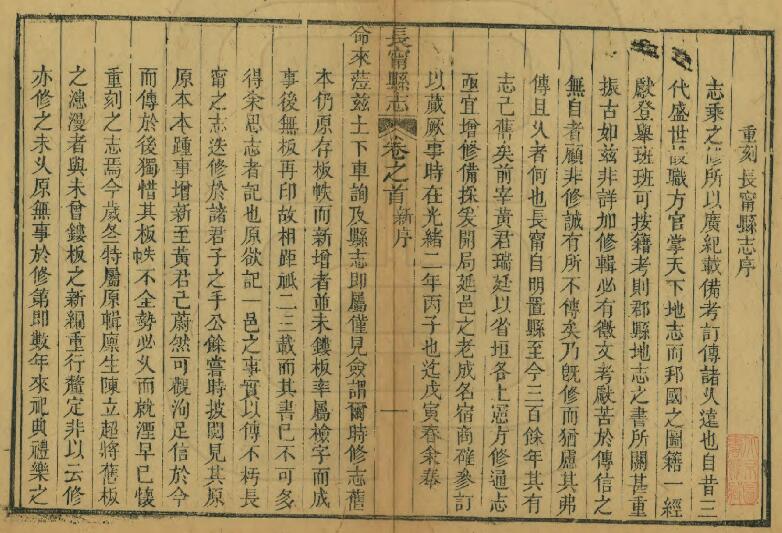 重刻長甯縣志序
志乘之修所以廣紀載備考訂傳諸久遠也自昔三
代盛世設職方官掌天下地志而邦國之圖籍一經
獻登舉班班可按籍考則郡縣地志之書所關甚重
振古如茲非詳加修輯必有徵文考獻苦於傳信之
無自者顧非修誠有所不傳矣乃旣修而猶慮其弗
傳且久者何也長甯自明置縣至今三百餘年其有
志已舊矣前宰黃君瑞延以省垣各上憲方修通志
亟宜增修備採爰開局延邑之老成名宿商確參訂
以蕆厥事時在光緒二年丙子也迄戊寅春余奉
長甯縣志
卷之首
新序
一
命來莅茲土下車詢及縣志即屬僅見僉謂爾時修志舊
本仍原存板帙而新增者並未鏤板率屬檢字而成
事後無板再印故相距祗二三載而其書已不可多
得余思志者記也原欲記一邑之事實以傳不朽長
甯之志迭修於諸君子之手公餘嘗時披閱見其原
原本本踵事增新至黃君已蔚然可觀洵足信於今
而傳於後獨惜其板帙不全勢必久而就湮早已懷
重刻之志焉今歲冬特屬原輯廩生陳立超將舊板
之漶漫者與未曾鏤板之新編重行釐定非以云修
亦修之未久原無事於修第即數年來祀典禮樂之